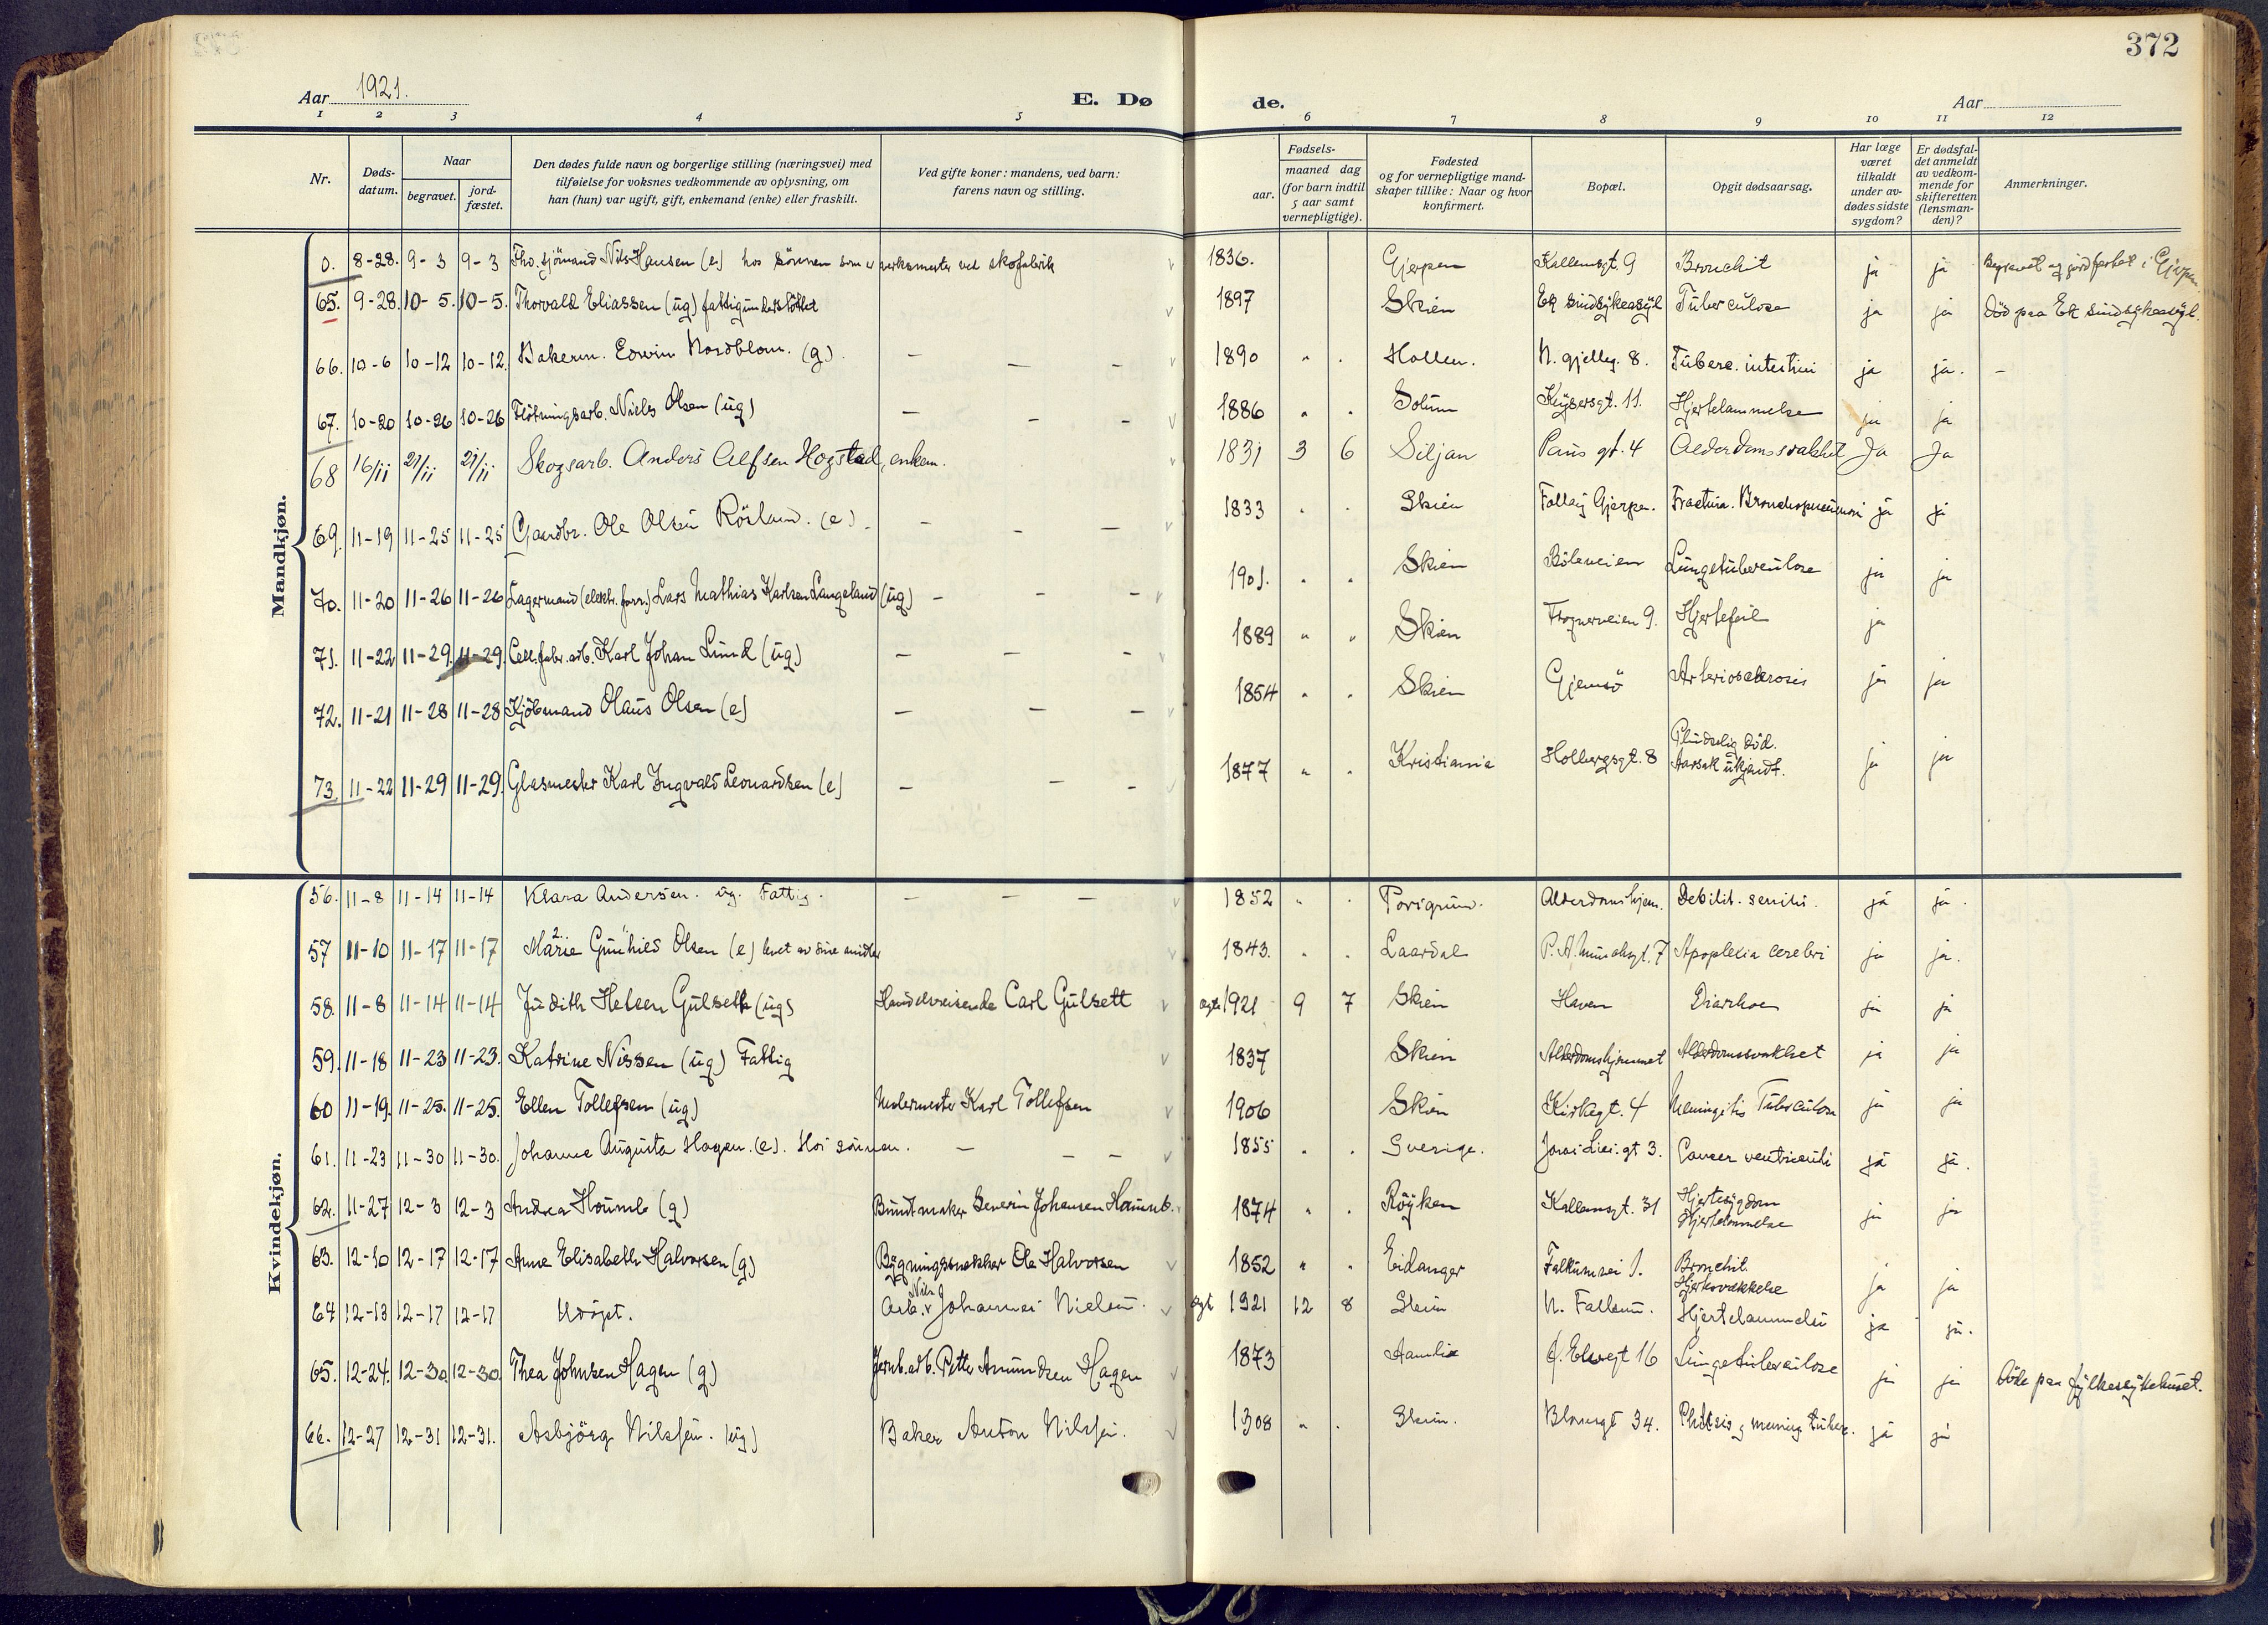 372
Aar 1921. E. Dø de. Aar
1 2 3 4 5 6 7 8 9 10 11 12
Nr.
Døds-datum.
Naar
begravet.
jord-fæstet.
Den dødes fulde navn og borgerlige stilling (næringsvei) med
tilføielse for voksnes vedkommende av oplysning, om
han (hun) var ugift, gift, enkemand (enke) eller fraskilt.
Ved gifte koner: mandens, ved barn:
farens navn og stilling.
Fødsels-
aar.
maaned dag
(for barn indtil
5 aar samt
vernepligtige).
Fødested
og for vernepligtige mand-
skaper tillike: Naar og hvor
konfirmert.
Bopæl.
Opgit dødsaarsag.
Har læge
været
tilkaldt
under av-
dødes sidste
sygdom?
Er dødsfal-
det anmeldt
av vedkom-
mende for
skifteretten
(lensman-
den)?
Anmerkninger.
Mandkjøn.
0. 8-28. 9-3 9-3 Fhv. sjömand Nils Hansen (e) hos sönnen som er verksmester ved skofabrik 1836. Gjerpen Kallemsgt. 9 Bronchit ja ja Begravet og jordfæstet i Gjerpen.
65. 9-28. 10-5. 10-5. Thorvald Eliassen (ug) fattigunderstöttet 1897 Skien Ek sindsykeasyl Tuberculose ja ja Död paa Ek sindssykeasyl.
66. 10-6 10-12 10-12. Bakerm. Edwin Nordblom. (g). — — - 1890 " . Hollen. N. gjelleg. 8. Tuberc. intestini ja ja. -
67. 10-20 10-26 10-26 Flötningsarb. Niels Olsen (ug) — - - 1886 " " Solum Keysersgt. 11. Hjertelammelse ja ja
68 16/11 21/11 21/11 Skogsarb. Anders Alfsen Hogstad, enkem. 1831 3 6 Siljan Paus gt. 4 Alderdomssvakhet Ja Ja
69. 11-19 11-25 11-25 Gaardbr. Ole Olsen (e). - - — 1833 . . Skien Follaug Gjerpen. Fractura. Bronchopneumoni ja ja
70. 11-20 11-26 11-26 Lagermand (elektr. forr.) Lars Mathias Karlsen Langeland (ug) - - - 1901. " " Skien Böleveien Lungetuberculose ja ja
71. 11-22 11-29. 11-29. Cell.fabr.arb. Karl Johan Lund (ug) — — - 1889 " " Skien Frognerveien 9. Hjertefeil ja
72. 11-21 11-28 11-28 Kjöbmand Olaus Olsen (e) — — — 1854 " . Skien Gjemsö Arteriosclerosis ja ja
73. 11-22 11-29 11-29. Glasmester Karl Ingvald Leonardsen (e) - - - 1877 " . Kristiania Holbergsgt. 8 Pludselig död. Aarsak ukjendt. ja ja
Kvindekjøn.
56. 11-8 11-14 11-14 Klara Andersen. ug. Fattig. — — — 1852 " . Porsgrund. Alderdomshjem. Debilit. senilis. ja ja.
57 11-10 11-17 11-17 Marie Gunhild Olsen (e) levet av sine midler 1843. . . Laardal P. A. Munchsgt. 7 Apoplexia cerebri ja ja.
58. 11-8 11-14 11-14 Judith Heleen Gulseth (ug) Handelsreisende Carl Gulsett ægte 1921 9 7 Skien Haven Diarrhoe ja ja
59. 11-18 11-23 11-23. Katrine Nissen (ug) Fattig 1837 Skien Alderdomshjemmet Alderdomssvakhet ja ja
60 11-19. 11-25. 11-25. Ellen Tollefsen (ug) Malermester Karl Tollefsen 1906 Skien Kirkegt. 4 Meningitis Tuberculosa ja ja
61. 11-23 11-30 11-30. Johanne Augusta Hagen. (e). Hos sönnen. — — — 1855 . . Sverige. Jonas Lies. gt 3. Cancer ventriculi ja ja.
62. 11-27 12-3 12-3 Andrea Houmb (g) Buntmaker Severin Johansen Houmb. 1874 " . Röyken Kallemsgt. 31 Hjertesygdom Hjertelammelse ja ja
63. 12-10 12-17 12-17 Anne Elisabeth Halvorsen (g) Bygningssnekker Ole Halvorsen 1852 " . Eidanger Falkumvei 1. Bronchit. Hjertesvækkelse ja ja
64 12-13 12-17 12-17 Udöpt. Arb. Nils Johannes Nielsen. ægt 1921 12 8 Skien N. Falkum. Hjertelammelse ja ja.
65. 12-24. 12-30 12-30. Thea Johnsen Hagen (g) Jernb.arb. Petter Amundsen Hagen 1873 Lungetuberculose ja ja Döde paa fylkessykehuset.
66. 12-27 12-31 12-31. Asbjörg Nilsen. (ug) Baker Anton Nilsen. 1908 " . Skien. 34. Phtisis og mening. tuberc. ja ja